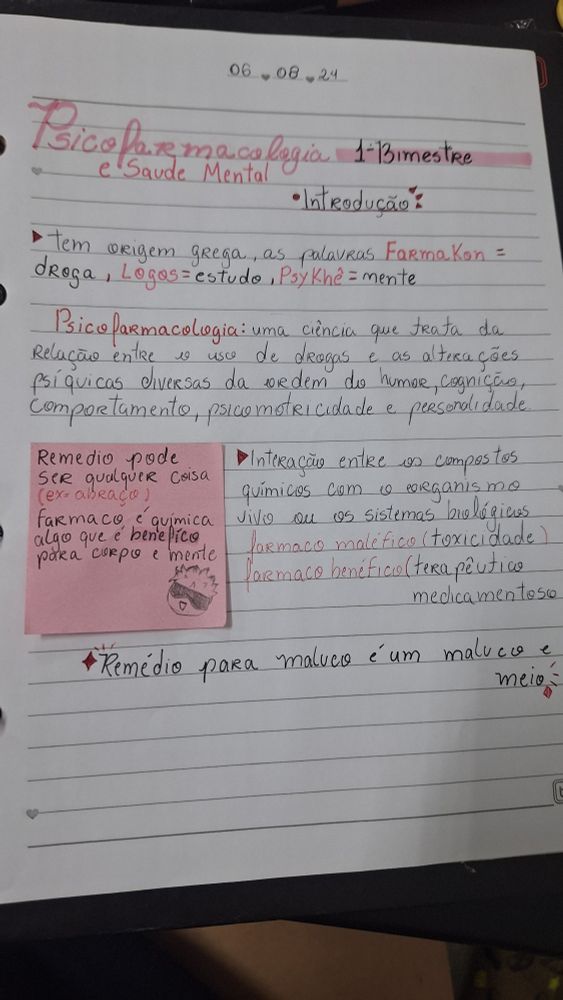 06 . 08 . 24
Psicofarmacologia 1-Bimestre
e Saude Mental
• Introdução
tem origem grega, as palavras FarmaKon =
droga, Logos = estudo, PsyKhê = mente
Psicofarmacologia: uma ciência que trata da
Relação entre o uso de drogas e as alterações
psíquicas diversas da ordem do humor, cognição,
comportamento, psicomotricidade e personalidade
Remedio pode
ser qualquer coisa
(ex= abraço)
farmaco é química
algo que é benefico
para corpo e mente
Interação entre os compostos
químicos com o organismo
vivo ou os sistemas biológicos
farmaco maléfico (toxicidade)
farmaco benéfico (terapêutico
medicamentoso
Remédio para maluco é um maluco e
meio